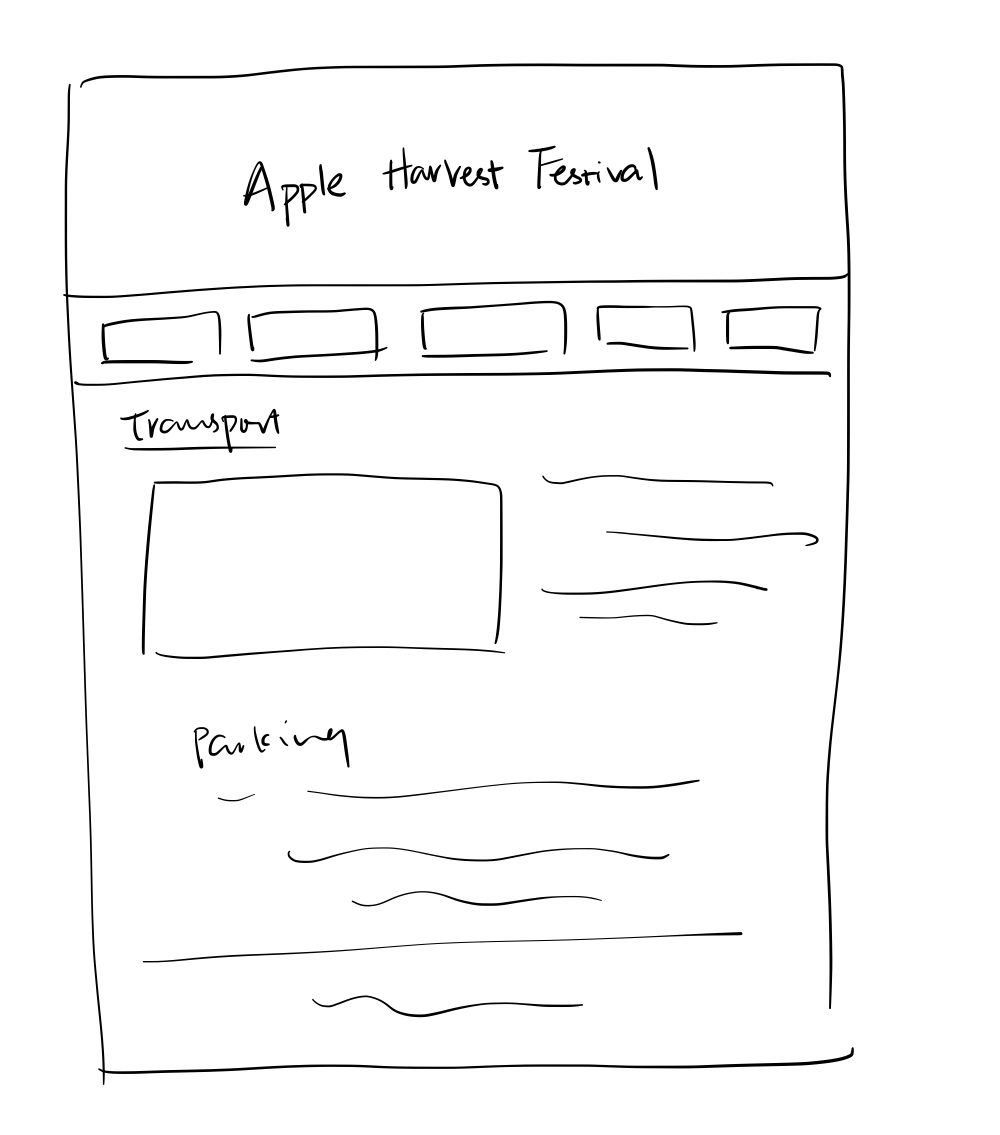 Apple Harvest Festival
Transport
Parking